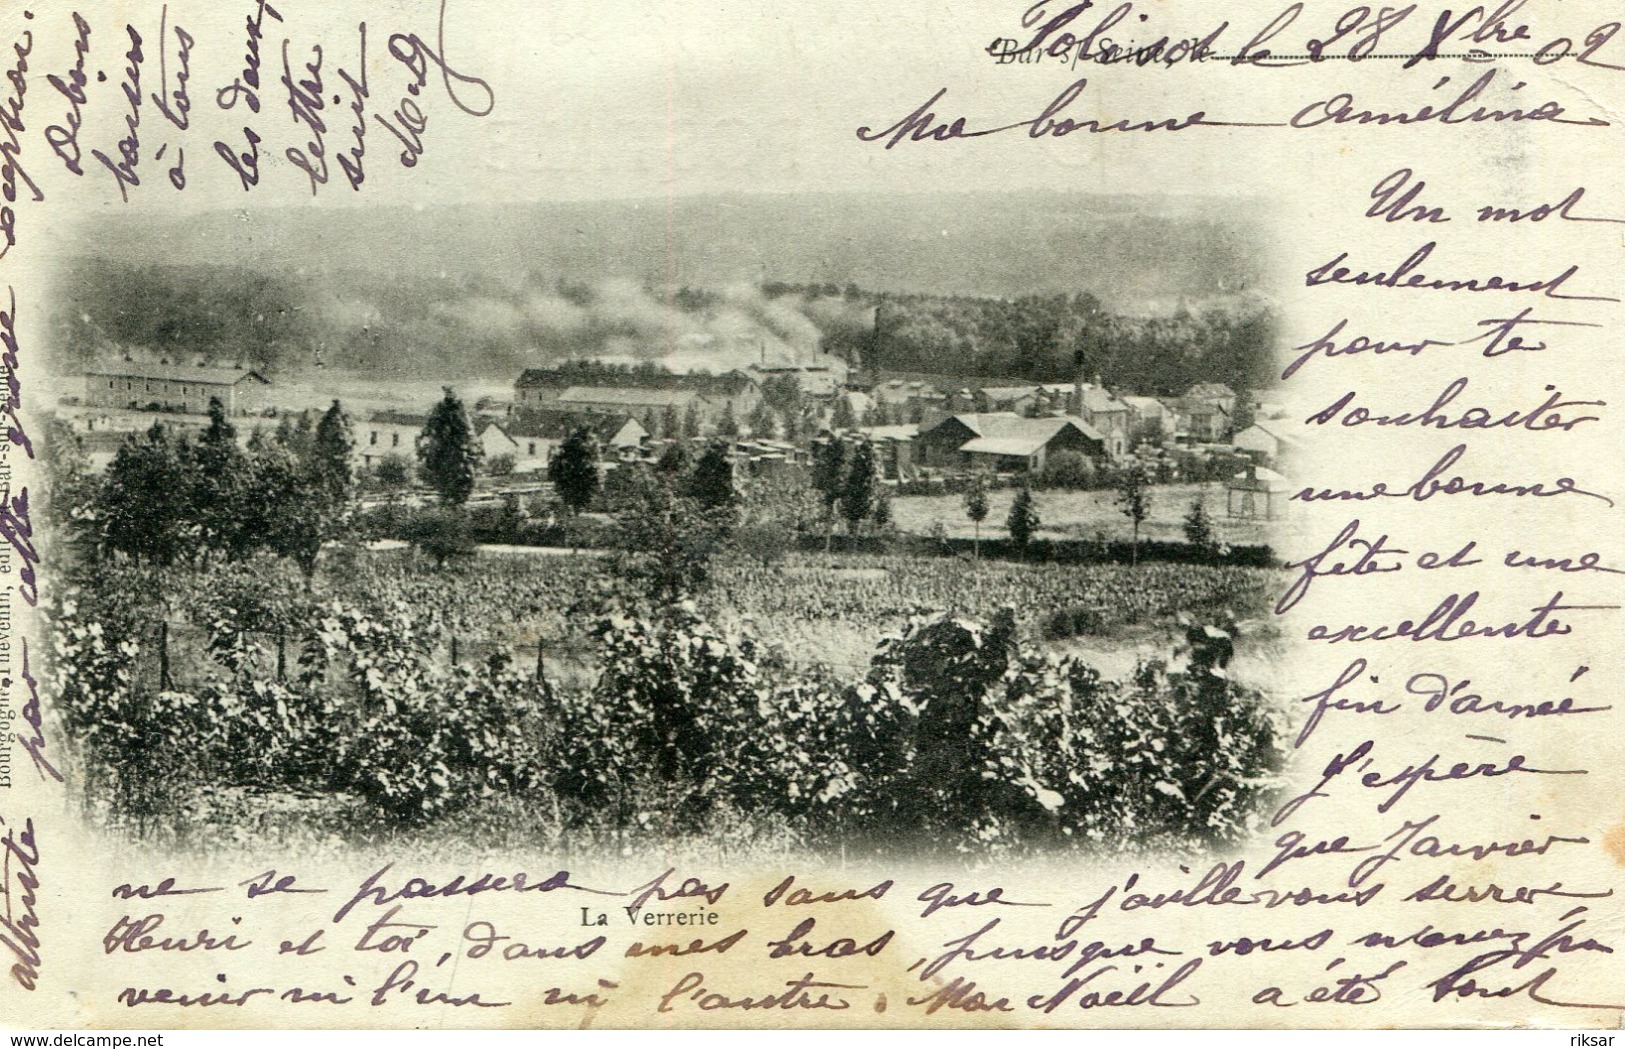 Bar-s/-Seine, le 28 Xbre 02
Ma bonne Amélina
Un mot
seulement
pour te
souhaiter
une bonne
fête et une
excellente
fin d'année
J'espère
que Janvier
ne se passera pas sans que j'aille vous serrer,
Henri et toi, dans mes bras, puisque vous n'avez pu
venir ni l'un ni l'autre. Mon Noël a été tout
attristé par cette grosse déception.
De bons
baisers
à tous
les deux,
lettre
suit
La Verrerie
Bourgogne-Thévenin, édit. Bar-sur-Seine
delcampe.net
riksar